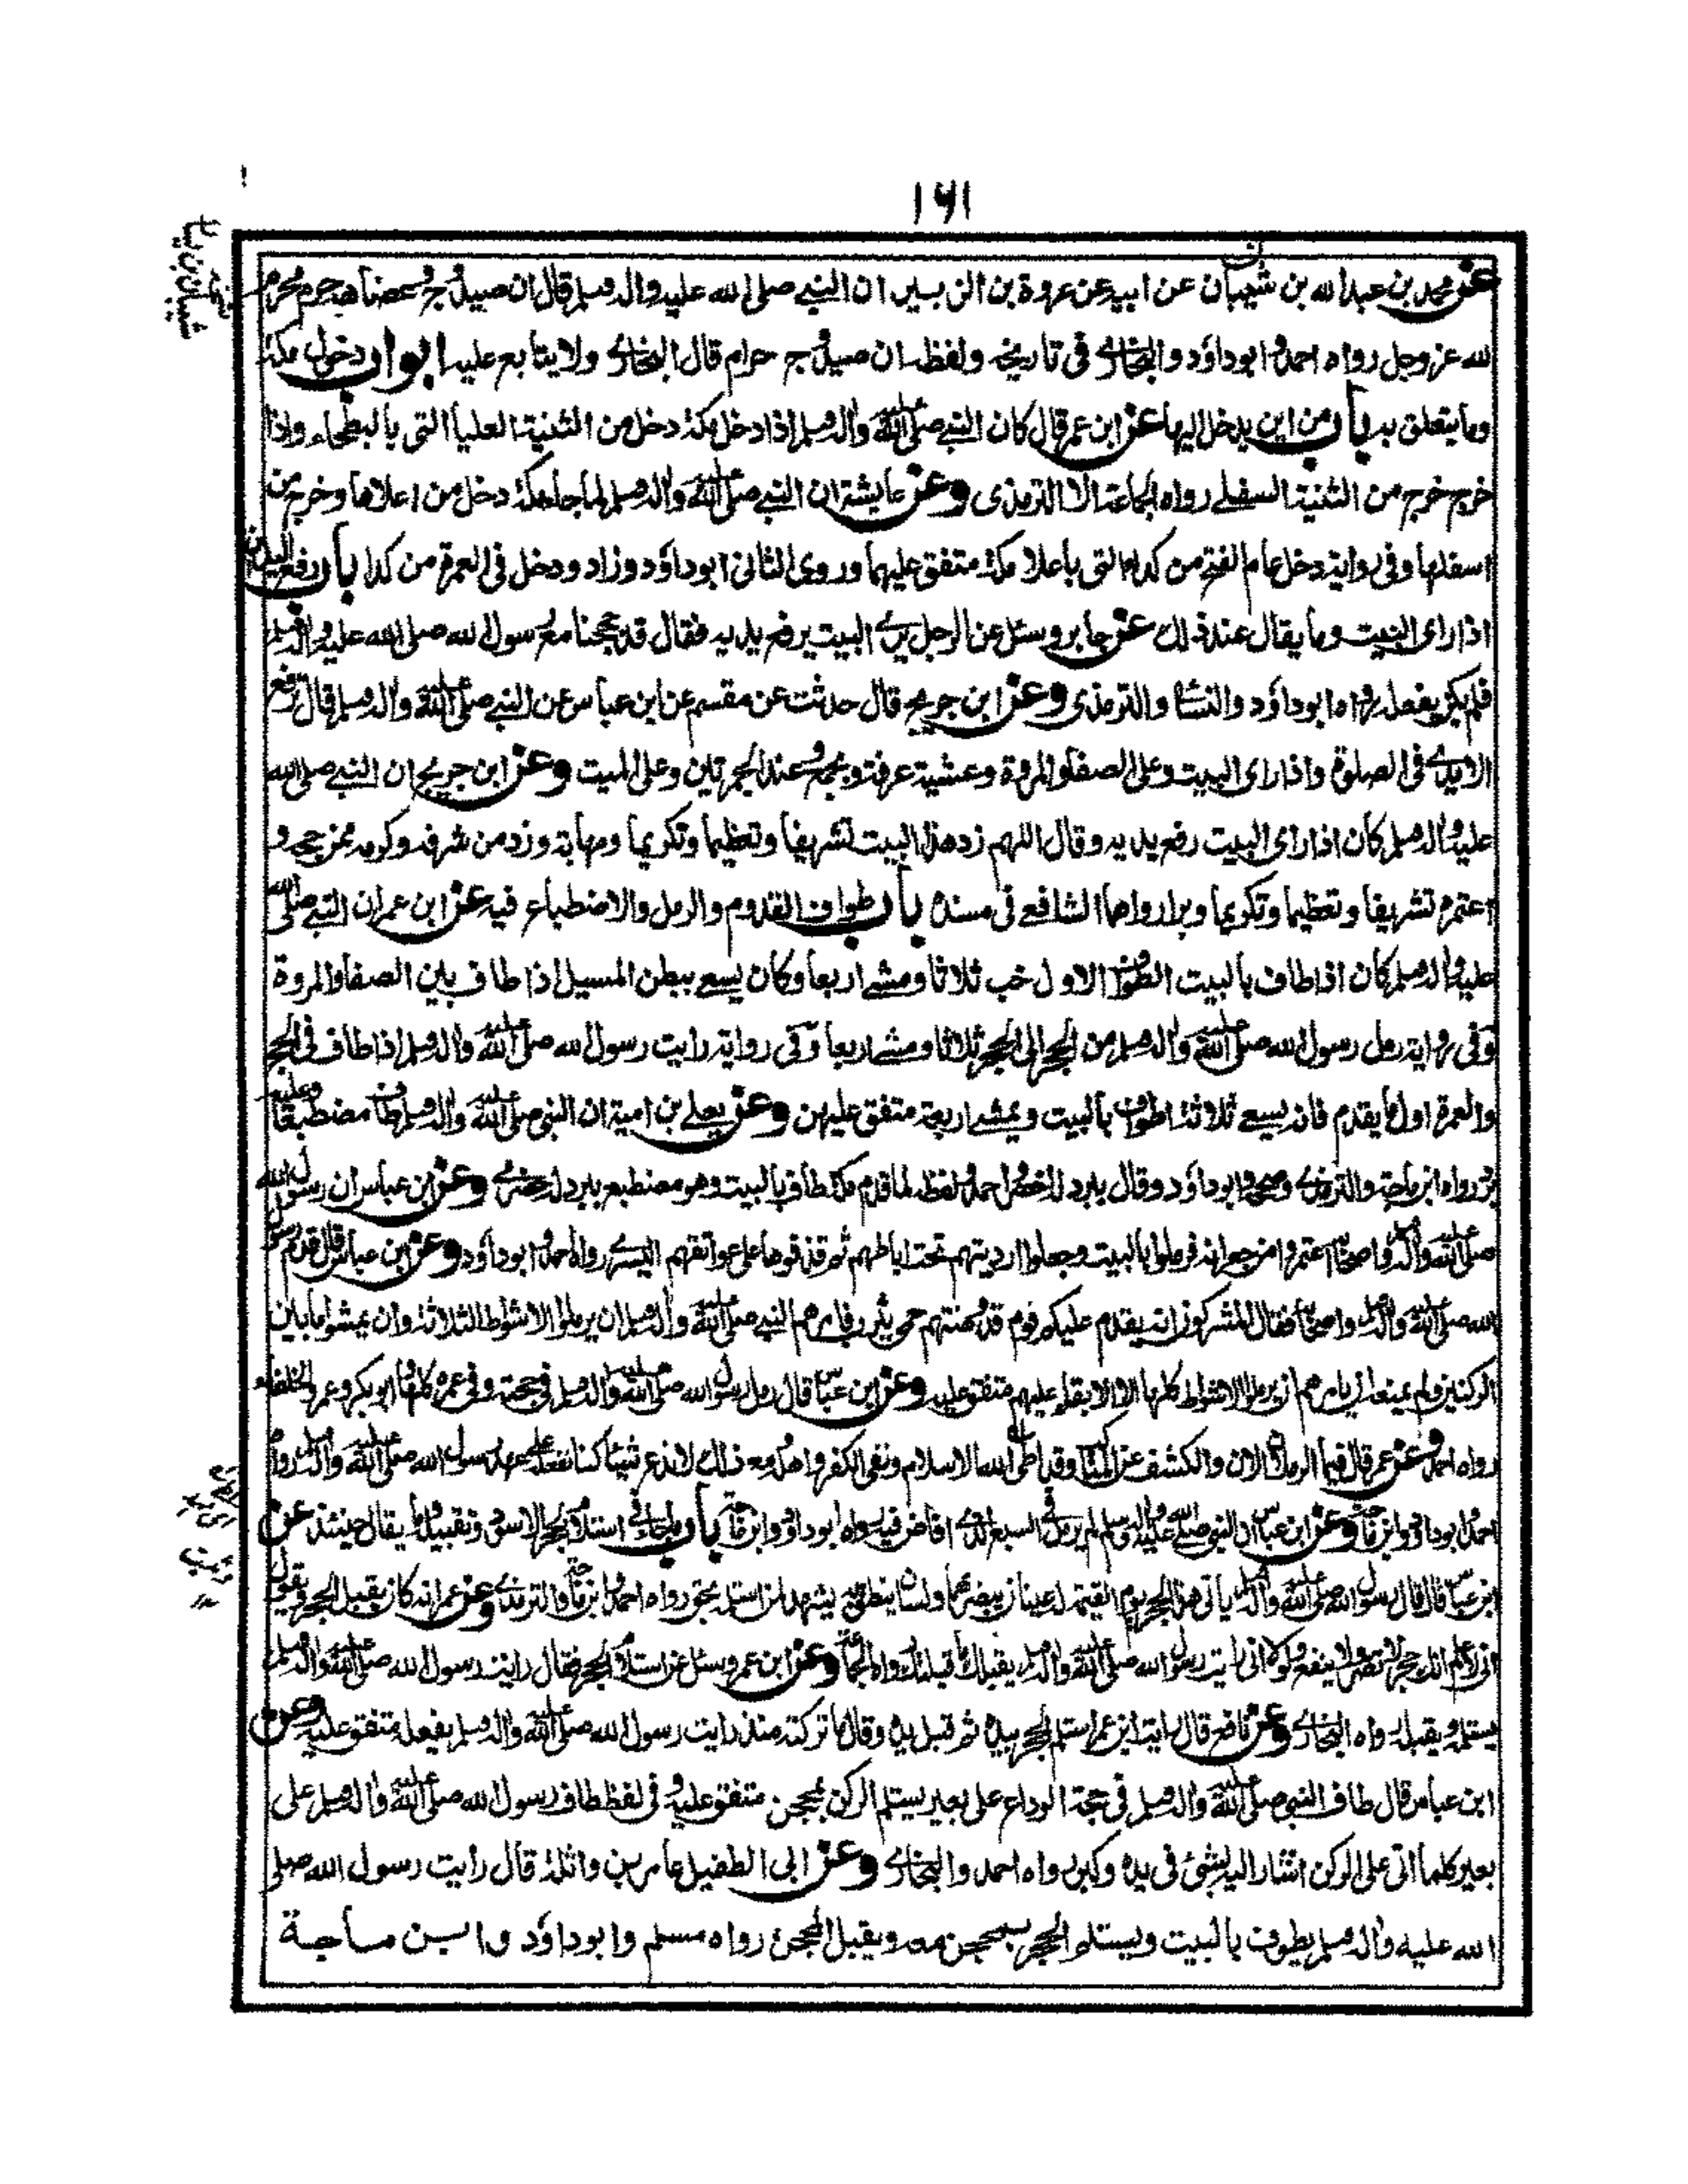 ١٦١
عن محمد بن عبد الله بن شيبان عن ابيه عن عروة بن الزبير ان النبي صلى الله عليه واله وسلم قال ان صيد وج وعضاهه حرم محرم
لله عز وجل رواه احمد وابو داود والبخاري في تاريخه ولفظه ان صيد وج حرام قال البخاري ولا يتابع عليه ابواب دخول مكة
وما يتعلق به باب من اين يدخل اليها عن ابن عمر قال كان النبي صلى الله عليه واله وسلم اذا دخل مكة دخل من الثنية العليا التي بالبطحاء واذا
خرج خرج من الثنية السفلى رواه الجماعة الا الترمذي وعن عايشة ان النبي صلى الله عليه واله وسلم لما جاء مكة دخل من اعلاها وخرج من
اسفلها وفي رواية دخل عام الفتح من كداء التي باعلا مكة متفق عليهما وروى الثاني ابو داود وزاد ودخل في العمرة من كدا باب رفع اليدين
اذا راى البيت وما يقال عند ذلك عن جابر وسئل عن الرجل يرى البيت يرفع يديه فقال قد حججنا مع رسول الله صلى الله عليه واله وسلم
فلم يكن يفعله رواه ابو داود والنسائي والترمذي وعن ابن جريج قال حدثت عن مقسم عن ابن عباس عن النبي صلى الله عليه واله وسلم قال ترفع
الايدي في الصلوة واذا راى البيت وعلى الصفا والمروة وعشية عرفة وبجمع وعند الجمرتين وعلى الميت وعن ابن جريج ان النبي صلى الله
عليه واله وسلم كان اذا راى البيت رفع يديه وقال اللهم زد هذا البيت تشريفا وتعظيما وتكريما ومهابة وزد من شرفه وكرمه ممن حجه و
اعتمره تشريفا وتعظيما وتكريما وبرا رواهما الشافعي في مسنده باب طواف القدوم والرمل والاضطباع فيه عن ابن عمر ان النبي صلى الله
عليه واله وسلم كان اذا طاف بالبيت الطواف الاول خب ثلاثا ومشى اربعا وكان يسعى ببطن المسيل اذا طاف بين الصفا والمروة
وفي رواية رمل رسول الله صلى الله عليه واله وسلم من الحجر الى الحجر ثلاثا ومشى اربعا وفي رواية رايت رسول الله صلى الله عليه واله وسلم اذا طاف في الحج
والعمرة اول ما يقدم فانه يسعى ثلاثة اطواف بالبيت ويمشي اربعة متفق عليهن وعن يعلى بن امية ان النبي صلى الله عليه واله وسلم طاف مضطبعا وعليه
برد رواه ابن ماجة والترمذي وصححه وابو داود وقال ببرد له اخضر واحمد ولفظه لما قدم مكة طاف بالبيت وهو مضطبع ببرد له حضرمي وعن ابن عباس ان رسول الله
صلى الله عليه واله وسلم واصحابه اعتمروا من جعرانة فرملوا بالبيت وجعلوا ارديتهم تحت اباطهم ثم قذفوها على عواتقهم اليسرى رواه احمد وابو داود وعن ابن عباس قال قدم رسول
الله صلى الله عليه واله وسلم واصحابه فقال المشركون انه يقدم عليكم قوم قد وهنتهم حمى يثرب فامرهم النبي صلى الله عليه واله وسلم ان يرملوا الاشواط الثلاثة وان يمشوا ما بين
الركنين ولم يمنعه ان يامرهم ان يرملوا الاشواط كلها الا الابقاء عليهم متفق عليه وعن ابن عباس قال رمل رسول الله صلى الله عليه واله وسلم في حجته وفي عمره كلها وابو بكر وعمر والخلفاء
رواه احمد وعن عمر قال فيما الرملان الان والكشف عن المناكب وقد اطى الله الاسلام ونفى الكفر واهله ومع ذلك لا ندع شيئا كنا نفعله على عهد رسول الله صلى الله عليه واله وسلم رواه
احمد وابو داود وابن ماجة وعن ابن عباس ان النبي صلى الله عليه واله وسلم لم يرمل في السبع الذي افاض فيه رواه ابو داود وابن ماجة باب ما جاء في استلام الحجر الاسود وتقبيله وما يقال حينئذ عن
ابن عباس قال قال رسول الله صلى الله عليه واله وسلم ياتي هذا الحجر يوم القيمة له عينان يبصر بهما ولسان ينطق به يشهد لمن استلمه بحق رواه احمد وابن ماجة والترمذي وعن عمر انه كان يقبل الحجر ويقول
اني لاعلم انك حجر لا تضر ولا تنفع ولولا اني رايت رسول الله صلى الله عليه واله وسلم يقبلك ما قبلتك رواه الجماعة وعن ابن عمر وسئل عن استلام الحجر فقال رايت رسول الله صلى الله عليه واله وسلم
يستلمه ويقبله رواه البخاري وعن نافع قال رايت ابن عمر استلم الحجر بيده ثم قبل يده وقال ما تركته منذ رايت رسول الله صلى الله عليه واله وسلم يفعله متفق عليه وعن
ابن عباس قال طاف النبي صلى الله عليه واله وسلم في حجة الوداع على بعير يستلم الركن بمحجن متفق عليه وفي لفظ طاف رسول الله صلى الله عليه واله وسلم على
بعير كلما اتى على الركن اشار اليه بشئ في يده وكبر رواه احمد والبخاري وعن ابي الطفيل عامر بن واثلة قال رايت رسول الله صلى
الله عليه واله وسلم يطوف بالبيت ويستلم الحجر بمحجن معه ويقبل المحجن رواه مسلم وابو داود وابن ماجة